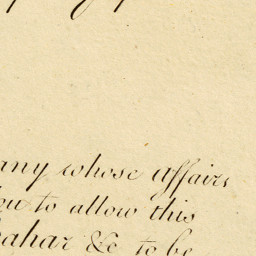 any whose affairs
to allow this
&c to be